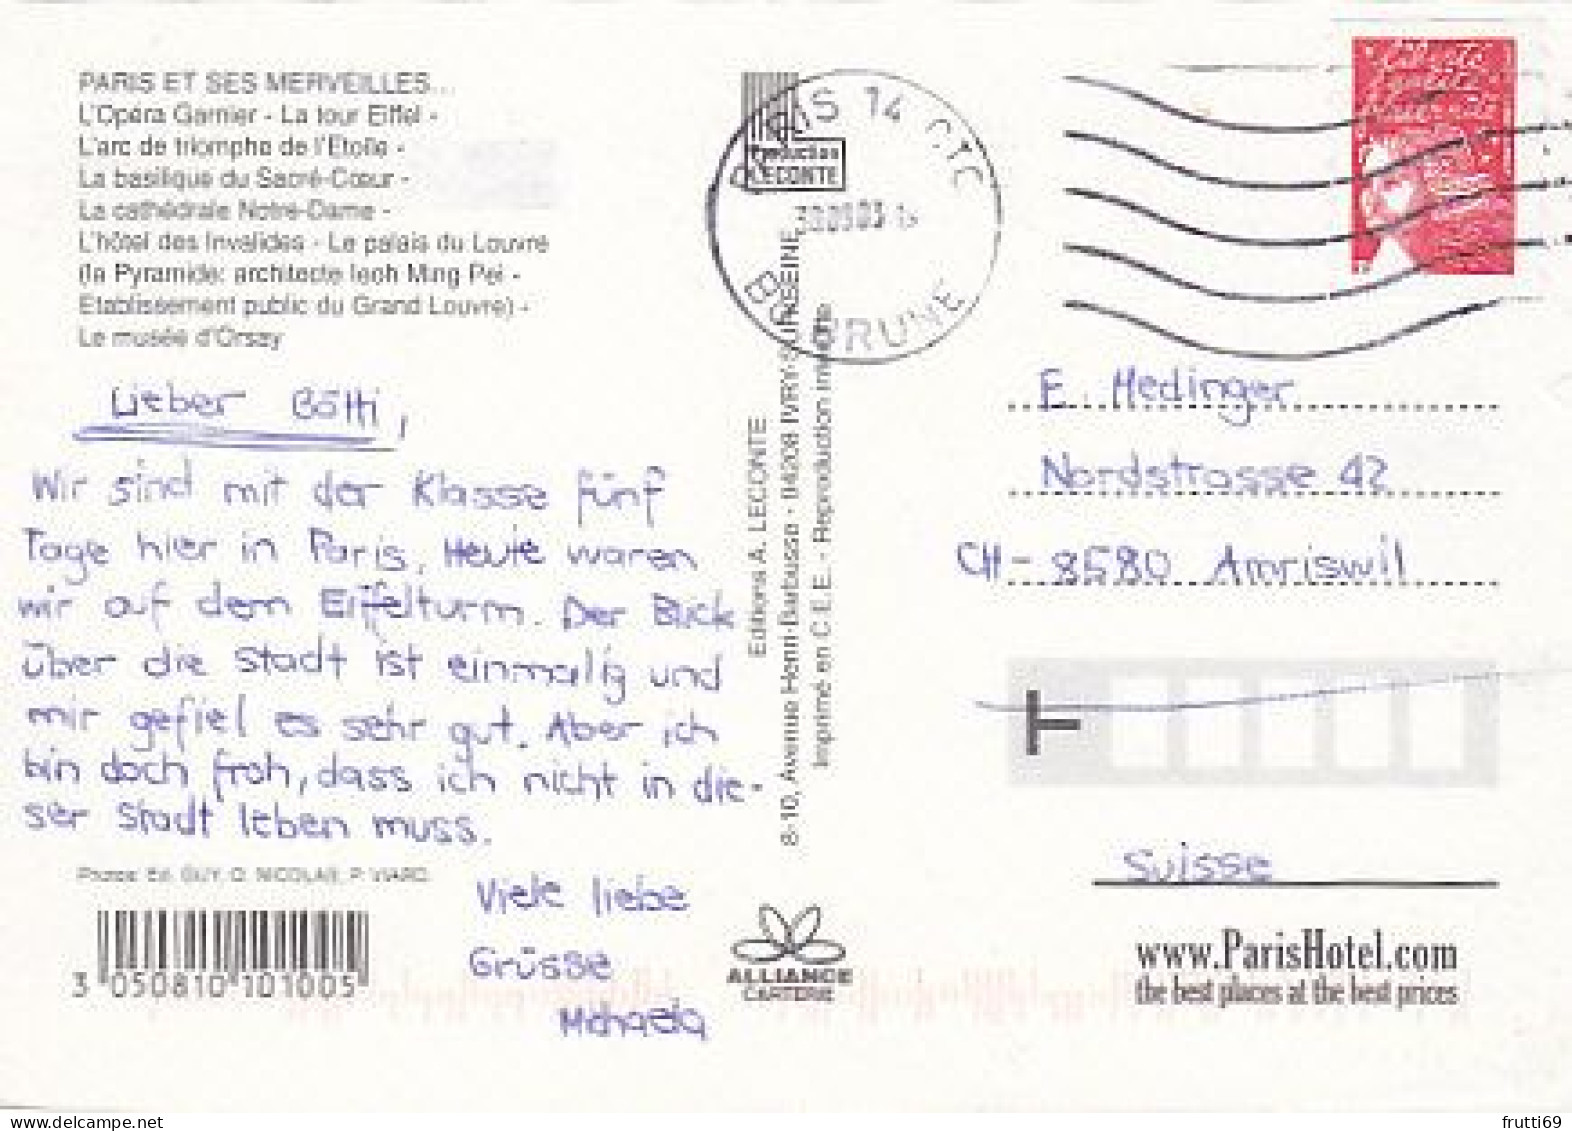 PARIS ET SES MERVEILLES...
L'Opéra Garnier - La tour Eiffel -
L'arc de triomphe de l'Etoile -
La basilique du Sacré-Cœur -
La cathédrale Notre-Dame -
L'hôtel des Invalides - Le palais du Louvre
(la Pyramide: architecte Ieoh Ming Pei -
Etablissement public du Grand Louvre) -
Le musée d'Orsay
Lieber Götti,
Wir sind mit der Klasse fünf
Tage hier in Paris. Heute waren
wir auf dem Eiffelturm. Der Blick
über die Stadt ist einmalig und
mir gefiel es sehr gut. Aber ich
bin doch froh, dass ich nicht in die-
ser Stadt leben muss.
Viele liebe
Grüsse
Michaela
Photos: Ed. GUY, O. NICOLAS, P. VIARD.
3 050810 101005
Production
LECONTE
Editions A. LECONTE
8-10, Avenue Henri-Barbusse - 94208 IVRY-SUR-SEINE
Imprimé en C.E.E. - Reproduction interdite
ALLIANCE
CARTERIE
PARIS 14 CTC
30.09.03
BRUNE
E. Hedinger
Nordstrasse 42
CH-8580 Amriswil
T
Suisse
www.ParisHotel.com
the best places at the best prices
frutti69